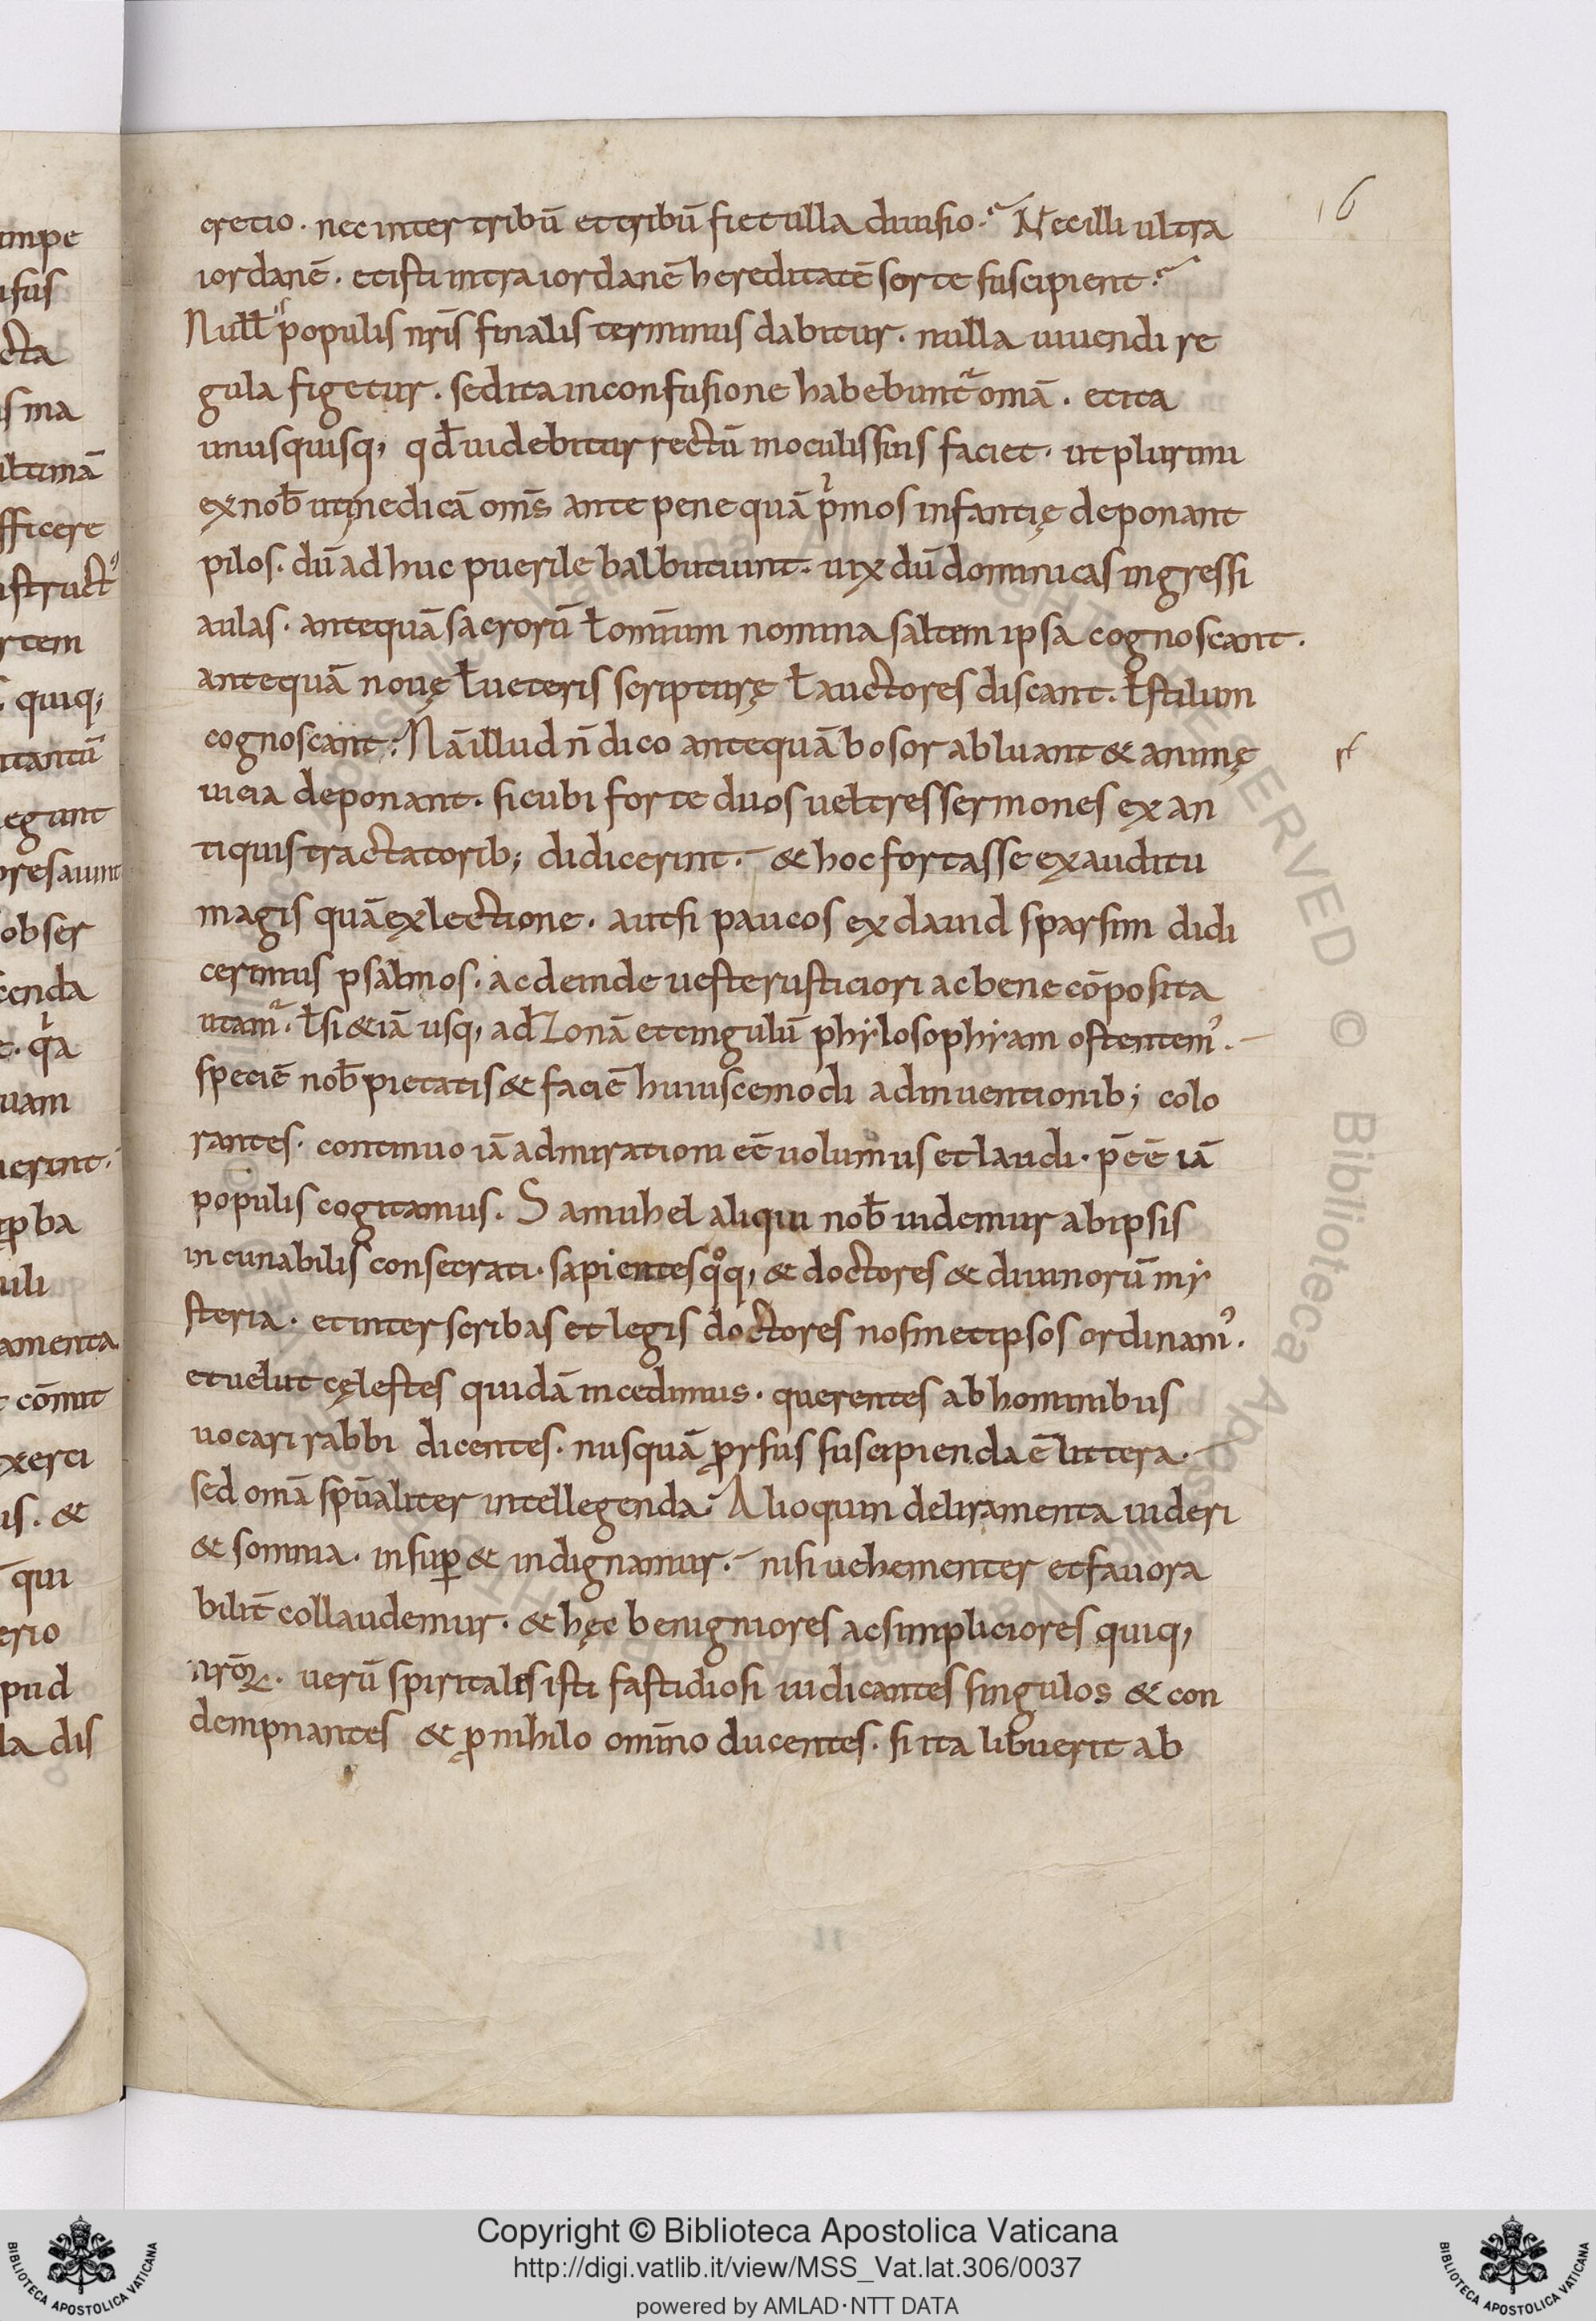 16
cretio. nec inter tribū et tribū fiet ulla diuisio. Nec illi ultra
iordanē. et isti intra iordanē hereditatē sorte suscipient.
Null᷒ populis nr̄is finalis terminus dabitur. nulla uiuendi re
gula figetur. sed ita in confusione habebunt᷑ om̄a. et ita
unusquisq; qđ uidebitur rectū in oculis suis faciet. ut plurimi
ex nob̄ ut medicā om̄s ante pene quā pͥmos infantię deponant
pilos. dū adhuc puerile balbutiunt. uix dū dominicas ingressi
aulas. antequā sacrorū ł omīum nomina saltem ipsa cognoscant.
antequā nouę ł ueteris scripturę ł auctores discant. ł stilum
cognoscant. Nā illud n̄ dico antequā bosor abluant & animę
uicia deponant. sicubi forte duos uel tres sermones ex an
tiquis tractatorib; didicerint. & hoc fortasse ex auditu
magis quā ex lectione. aut si paucos ex dauid sparsim didi
cerimus psalmos. ac deinde ueste rusticiori ac bene cōposita
utam᷑. ł si &iā usq; ad zonā et cingulū phylosophyam ostentem᾿.
speciē nob̄ pietatis & faciē huiuscemodi adinuentionib; colo
rantes. continuo iā admirationi eē uolumus et laudi. p̄eē iā
populis cogitamus. Samuhel aliqui nob̄ uidemur ab ipsis
incunabilis consecrati. sapientes qͦq; & doctores & diuinorū my
steria. et inter scribas et legis doctores nosmetipsos ordinam᾿.
et uelut cęlestes quidā incedimus. querentes ab hominibus
uocari rabbi dicentes. nusquā ꝓrsus suscipienda ē littera.
sed om̄a spūaliter intellegenda. Alioquin deliramenta uideri
& somnia. insuꝑ & indignamur. nisi uehementer et fauora
bilit̄ collaudemur. & hęc benigniores ac simpliciores quiq;
nr̄oꝝ. uerū spiritales isti fastidiosi iudicantes singulos & con
dempnantes & ꝓ nihilo omīno ducentes. si ita libuerit ab
Copyright © Biblioteca Apostolica Vaticana
http://digi.vatlib.it/view/MSS_Vat.lat.306/0037
powered by AMLAD·NTT DATA
BIBLIOTECA APOSTOLICA VATICANA
BIBLIOTECA APOSTOLICA VATICANA